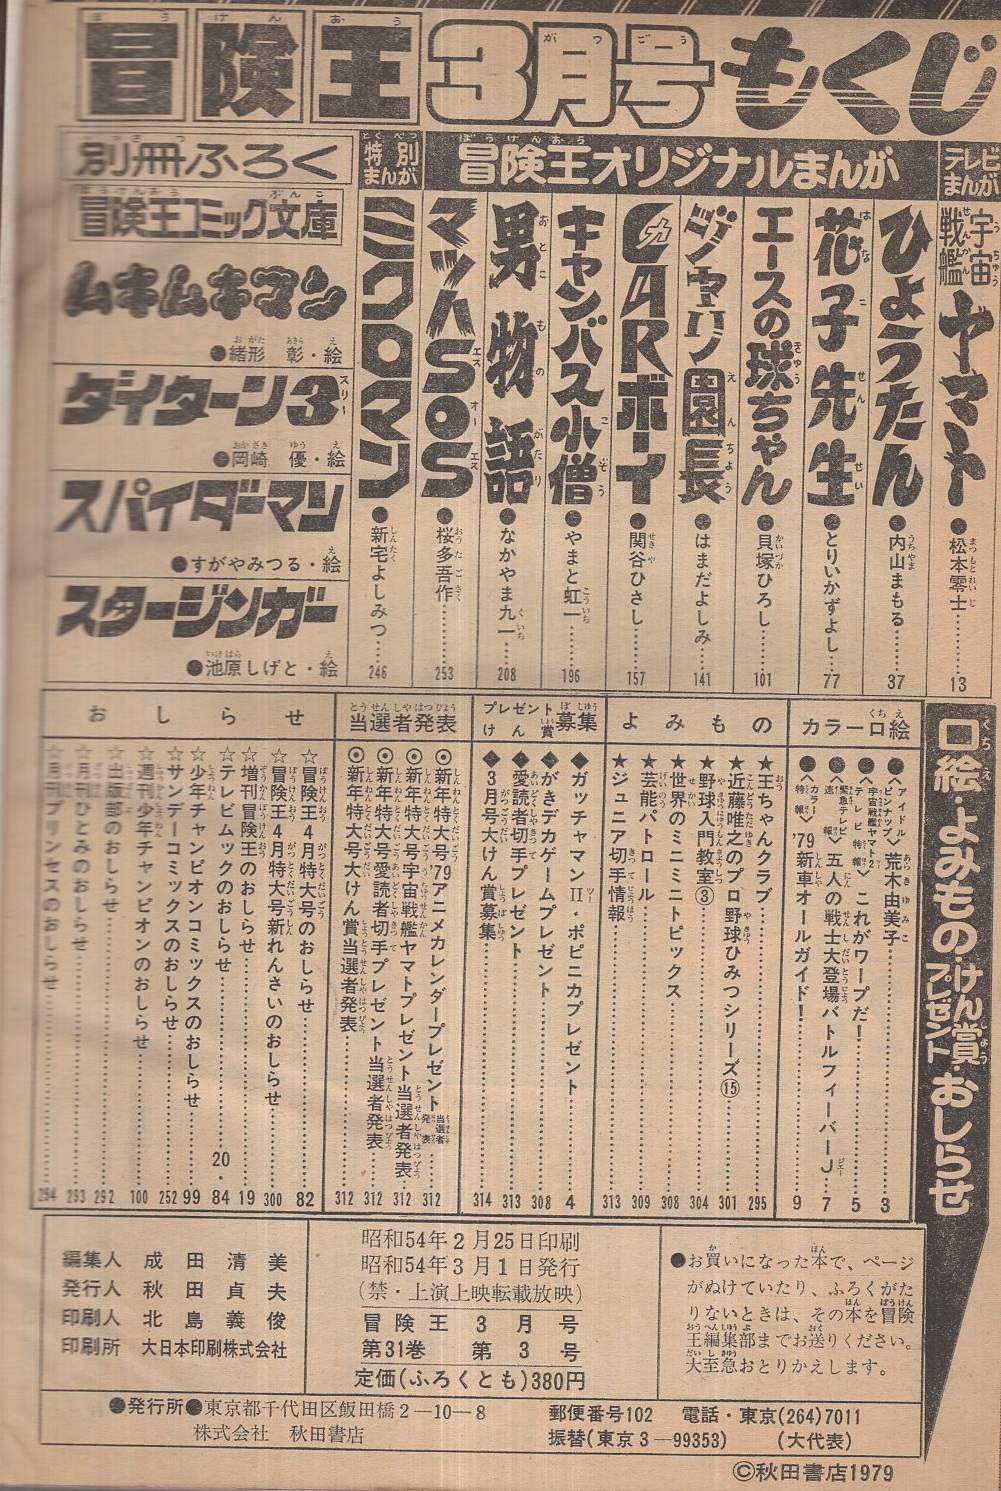 冒険王3月号もくじ
テレビまんが
宇宙戦艦ヤマト●松本零士………13
冒険王オリジナルまんが
ひょうたん●内山まもる………37
花子先生●とりいかずよし………77
エースの球ちゃん●貝塚ひろし………101
ジャリ園長●はまだよしみ………141
CARボーイ●関谷ひさし………157
キャンバス小僧●やまと虹一………196
男物語●なかやま九一………208
マッハSOS●桜多吾作………253
特別まんが
ミクロマン●新宅よしみつ………246
別冊ふろく
冒険王コミック文庫
ムキムキマン
●緒形 彰・絵
ダイターン3
●岡崎 優・絵
スパイダーマン
●すがやみつる・絵
スタージンガー
●池原しげと・絵
口絵・よみもの・けん賞プレゼント・おしらせ
カラー口絵
●〈アイドルピンナップ〉荒木由美子………3
●〈宇宙戦艦ヤマト2テレビ特報〉これがワープだ!………5
●〈緊急テレビ速報〉五人の戦士大登場バトルフィーバーJ………7
●〈カラー特報〉'79新車オールガイド!………9
よみもの
★王ちゃんクラブ………295
★近藤唯之のプロ野球ひみつシリーズ⑮………301
★野球入門教室③………304
★世界のミニミニトピックス………308
★芸能パトロール………309
★ジュニア切手情報………313
プレゼントけん賞募集
◆ガッチャマンⅡ・ポピニカプレゼント………4
◆がきデカゲームプレゼント………308
◆愛読者切手プレゼント………313
◆3月号大けん賞募集………314
当選者発表
⦿新年特大号'79アニメカレンダープレゼント当選者発表………312
⦿新年特大号宇宙戦艦ヤマトプレゼント当選者発表………312
⦿新年特大号愛読者切手プレゼント当選者発表………312
⦿新年特大号大けん賞当選者発表………312
おしらせ
☆冒険王4月特大号のおしらせ………82
☆冒険王4月特大号新れんさいのおしらせ………300
☆増刊冒険王のおしらせ………19
☆テレビムックのおしらせ………20・84
☆少年チャンピオンコミックスのおしらせ………99
☆サンデーコミックスのおしらせ………252
☆週刊少年チャンピオンのおしらせ………100
☆出版部のおしらせ………292
☆月刊ひとみのおしらせ………293
☆月刊プリンセスのおしらせ………294
編集人 成田清美
発行人 秋田貞夫
印刷人 北島義俊
印刷所 大日本印刷株式会社
昭和54年2月25日印刷
昭和54年3月1日発行
(禁・上演上映転載放映)
冒険王3月号
第31巻 第3号
定価(ふろくとも)380円
●お買いになった本で、ページ
がぬけていたり、ふろくがた
りないときは、その本を冒険
王編集部までお送りください。
大至急おとりかえします。
●発行所●東京都千代田区飯田橋2-10-8
株式会社 秋田書店
郵便番号102 電話・東京(264)7011
振替(東京3-99353) (大代表)
©秋田書店1979